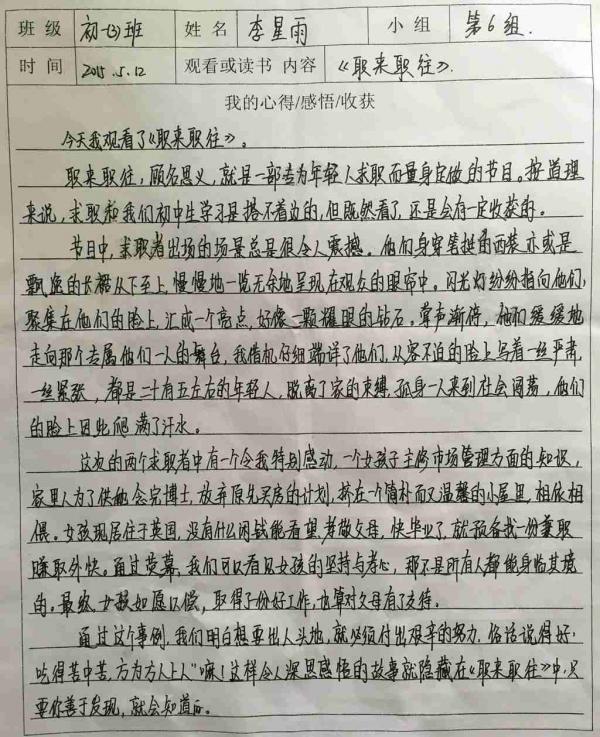 班级 初一(3)班 姓名 李星雨 小组 第6组.
时间 2015.5.12 观看或读书 内容 《职来职往》.
我的心得/感悟/收获
今天我观看了《职来职往》。
职来职往,顾名思义,就是一部专为年轻人求职而量身定做的节目。按道理
来说,求职和我们初中生学习是搭不着边的,但既然看了,还是会有一定收获的。
节目中,求职者出场的场景总是很令人震撼。他们身穿笔挺的西装亦或是
飘逸的长裙从下至上,慢慢地一览无余地呈现在观众的眼帘中。闪光灯纷纷指向他们,
聚集在他们的脸上,汇成一个亮点,好像一颗耀眼的钻石。掌声渐停,他们缓缓地
走向那个专属他们一人的舞台,我借机仔细端详了他们,从容不迫的脸上写着一丝严肃,
一丝紧张,都是二十有五左右的年轻人,脱离了家的束缚,孤身一人来到社会闯荡,他们
的脸上因此爬满了汗水。
这次的两个求职者中有一个令我特别感动,一个女孩子主修市场管理方面的知识,
家里人为了供她念完博士,放弃原先买房的计划,挤在一个简朴而又温馨的小屋里,相依相
偎。女孩现居住于英国,没有什么闲钱能看望孝敬父母,快毕业了,就预备找一份兼职
赚取外快。通过荧幕,我们可以看见女孩的坚持与孝心,那不是所有人都能身临其境
的。最终,女孩如愿以偿,取得了份好工作,也算对父母有了交待。
通过这个事例,我们明白想要出人头地,就必须付出艰辛的努力,俗话说得好:
吃得苦中苦,方为方人上人"嘛!这样令人深思感悟的故事就隐藏在《职来职往》中,只
要你善于发现,就会知道的。